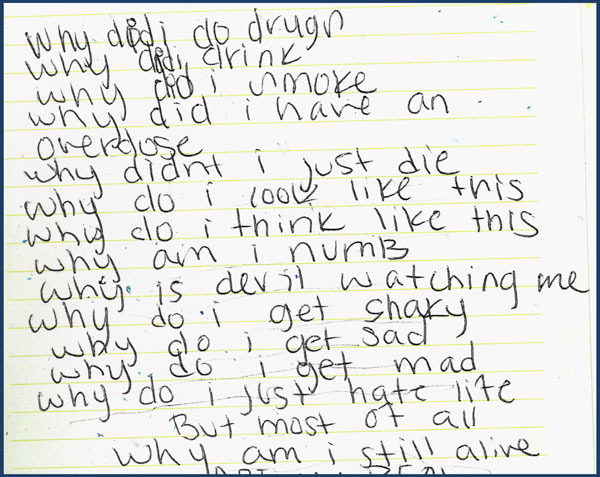 why did i do drugs
why did i drink
why did i smoke
why did i have an
overdose
why didnt i just die
why do i look like this
why do i think like this
why am i numb
why is devil watching me
why do i get shaky
why do i get sad
why do i get mad
why do i just hate life
But most of all
why am i still alive